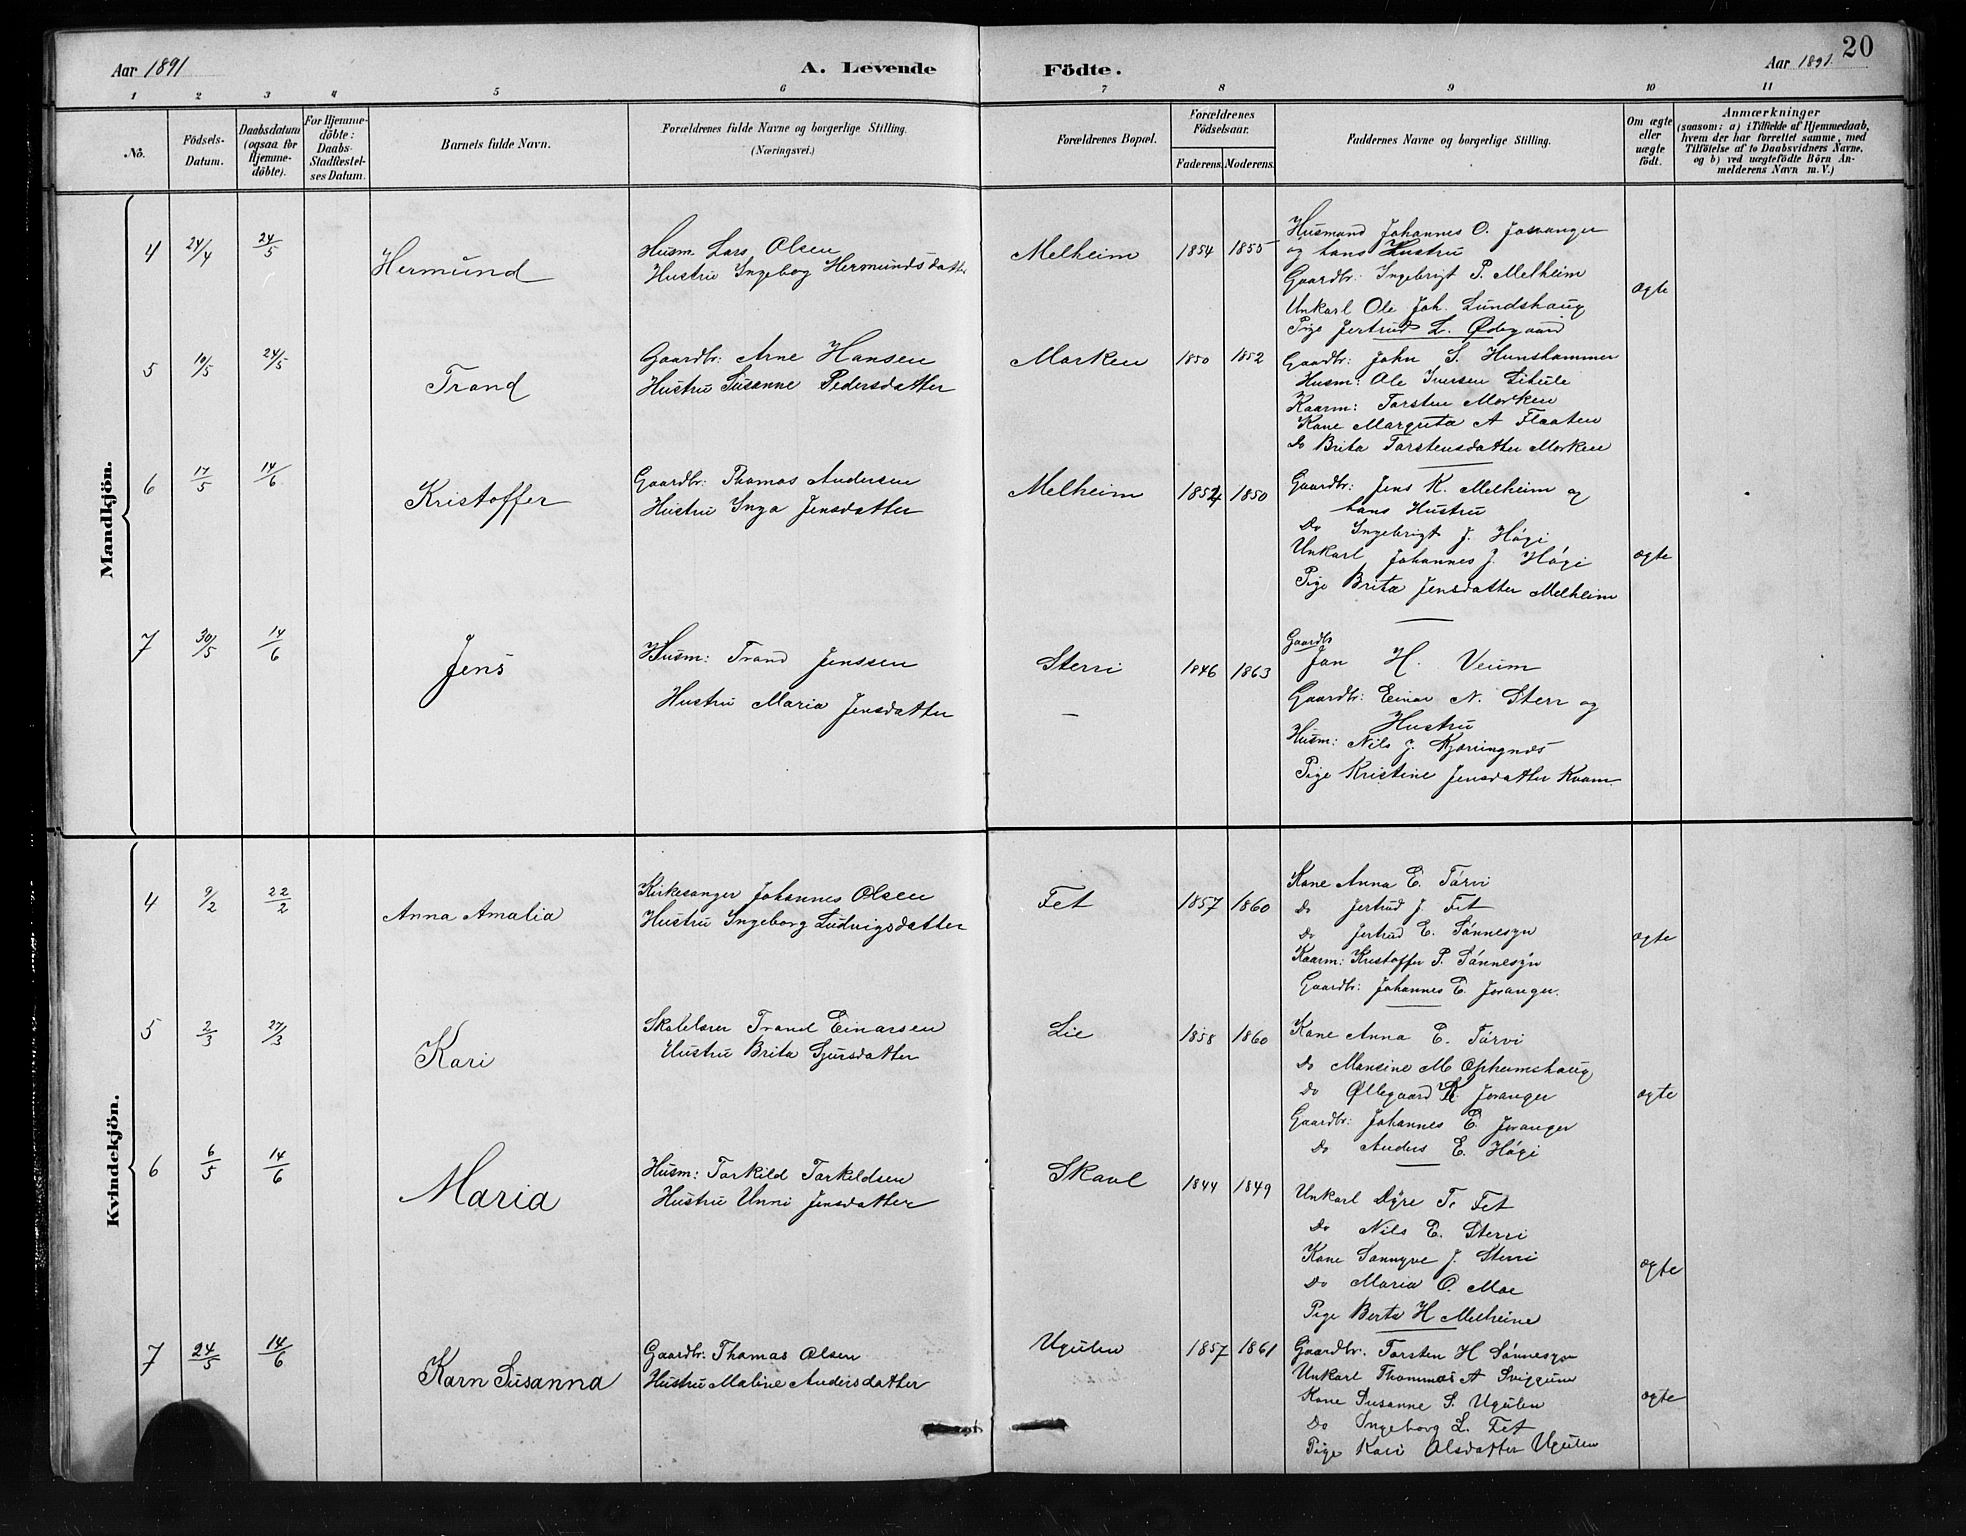 Aar 1891
A. Levende Födte.
Aar 1891.
20
1 2 3 4 5 6 7 8 9 10 11
No.
Födsels-Datum.
Daabsdatum (ogsaa for Hjemme-döbte).
For Hjemme-döbte: Daabs-Stadfestel-ses Datum.
Barnets fulde Navn.
Forældrenes fulde Navne og borgerlige Stilling.
(Næringsvei.)
Forældrenes Bopæl.
Forældrenes Födselsaar.
Faderens.
Moderens.
Faddernes Navne og borgerlige Stilling.
Om ægte eller uægte födt.
Anmærkninger
(saasom: a) i Tilfælde af Hjemmedaab, hvem der har forrettet samme, med Tilföielse af to Daabsvidners Navne, og b) ved uægtefödte Börn An-melderens Navn m. V.)
Mandkjön.
4 24/4 24/5 Hermund
Husm. Lars Olsen
Hustru Ingebog Hermundsdatter
Melheim 1854 1855
Husmand Johannes O. Joranger
og hans Hustru
Gaardbr: Ingebrigt P. Melheim
Unkarl Ole Joh. Lundshaug
Pige Jertrud L. Ødegaard
Ægte
5 10/5 24/5 Trand
Gaardbr: Arne Hansen
Hustru Susanne Pedersdatter
Morken 1850 1852
Gaadbr: John S. Hunshammer
Husm: Ole Iversen
Kaarm: Torsten Morken
Kone Margreta A Flaaten
Do Brita Torstensdatter Morken
6 17/5 14/6 Kristoffer
Gaardbr: Thomas Andersen
Hustru Inga Jensdatter
Melheim 1852 1850
Gaardbr: Jens K. Melheim og
hans Hustru
Do Ingebrigt J. Høgi
Unkarl Johannes J. Høgi
Pige Brita Jensdatter Melheim
ægte
7 30/5 14/6 Jens
Husm: Trand Jenssen
Hustru Maria Jensdatter
Sterri 1846 1863
—
Gaardbr
Jan H. Veum
Gaardbr: Einar N. Sterr og
Hustru
Husm: Nils J. Kjærringnes
Pige Kristine Jensdatter Kvam.
Kvindekjön.
4 9/2 22/2 Anna Amalia
Kirkesanger Johannes Olsen
Hustru Ingeborg Ludvigsdatter
Fet 1857 1860
Kone Anna E. Tórvi
Do Jertrud J. Fet
Do Jertrud E. Sónnesyn
Kaarm: Kristoffer P. Sónnesyn
Gaardbr: Johannes E. Joranger.
ægte
5 2/3 27/3 Kari
Skolelærer Trand Einarsen
Hustru Brita Sjursdatter
Lie 1858 1860
Kone Anna E. Tórvi
Do Mansine M Opheimshaug
Do Øllegaard K. Joranger
Gaardbr: Johannes E. Joranger
Do Anders E. Høgi
ægte
6 6/5 14/6 Maria
Husm: Torkild Torkildsen
Hustru Unni Jensdatter
Skavl 1844 1849
Unkarl Dyre T. Fet
Do Nils E. Sterri
Kone Sannyve J. Sterri
Do Maria O. Moe
Pige Berta H Melheine
ægte
7 24/5 14/6 Karn Susanna
Gaardbr: Thomas Olsen
Hustru Maline Andersdatter
Ugulen 1857 1861
Gaardbr. Torsten H Sónnesyn
Unkarl Thommas A Sviggum
Kone Susanne S. Ugulen
Do Ingeborg L. Fet
Pige Kari Olsdatter Ugulen
ægte